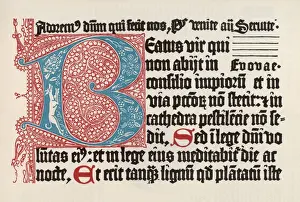 Adorem⁹ dn̄m qui fecit nos, Ps̄ venite an̄ Seruite.
Beatus vir qui
non abijt in Evovae
consilio impiorū et in
via pctōꝝ nō stetit: et in
cathedra pestilēcie nō se-
dit, Sed i lege dn̄i vo
lūtas ei⁹: et in lege eius meditabit᷑ die ac
nocte, Et erit tanq̄ lignū qd̄ plātatū iste